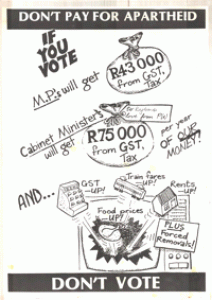 DON'T PAY FOR APARTHEID
IF
YOU
VOTE
M.P.'s will get
R43 000
from GST,
Tax
Cabinet Ministers
will get
R75 000
from GST,
Tax
per year
OF OUR
MONEY!
AND...
GST
UP!
Train fares
UP!
Rents
UP!
Food prices
UP!
PLUS
Forced
Removals!
DON'T VOTE